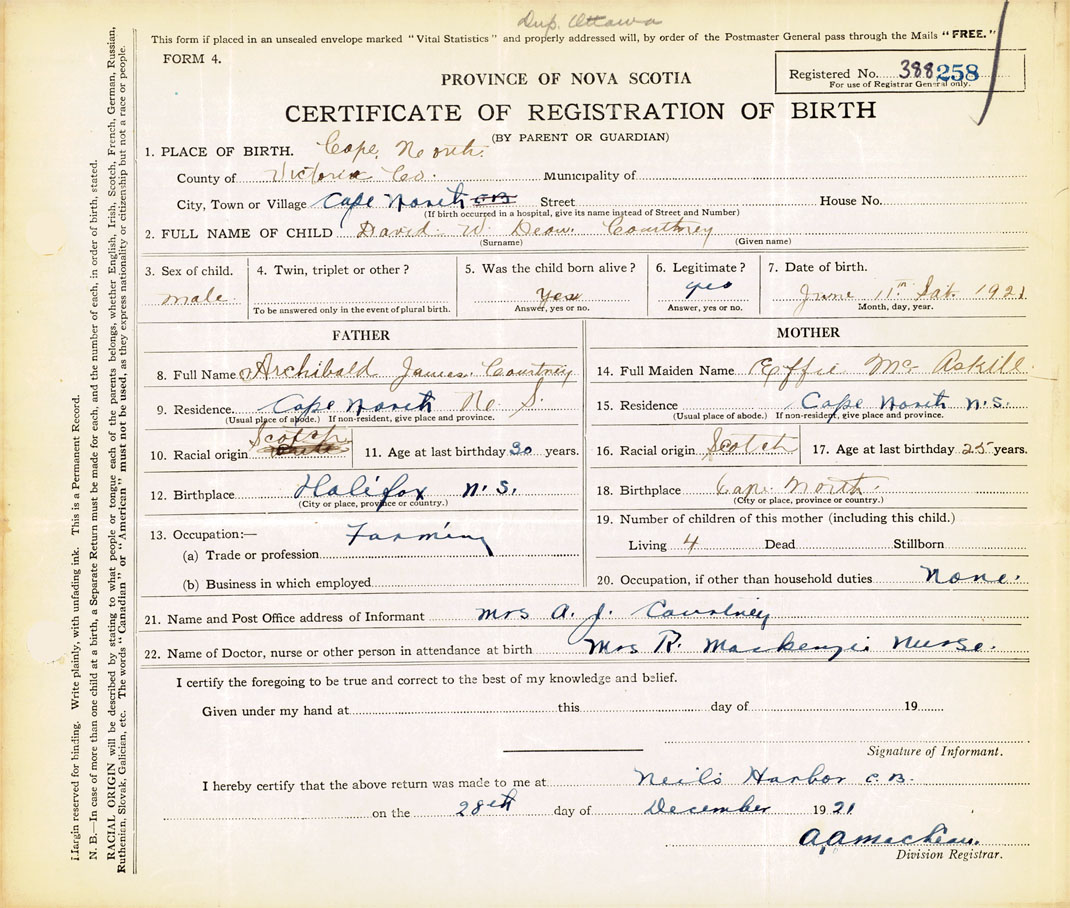 Dup. Ottawa
This form if placed in an unsealed envelope marked "Vital Statistics" and properly addressed will, by order of the Postmaster General pass through the Mails "FREE."
FORM 4.
PROVINCE OF NOVA SCOTIA
Registered No. 388 258
For use of Registrar General only.
CERTIFICATE OF REGISTRATION OF BIRTH
(BY PARENT OR GUARDIAN)
1. PLACE OF BIRTH. Cape North.
County of Victoria Co. Municipality of
City, Town or Village Cape North C B Street House No.
(If birth occurred in a hospital, give its name instead of Street and Number)
2. FULL NAME OF CHILD David W. Dean Courtney
(Surname) (Given name)
3. Sex of child. 4. Twin, triplet or other? 5. Was the child born alive? 6. Legitimate? 7. Date of birth.
male. Yes yes June 11th Sat. 1921
To be answered only in the event of plural birth. Answer, yes or no. Answer, yes or no. Month, day, year.
FATHER
8. Full Name Archibald James Courtney
9. Residence. Cape North N. S.
(Usual place of abode.) If non-resident, give place and province.
10. Racial origin Scotch 11. Age at last birthday 30 years.
12. Birthplace Halifax N.S.
(City or place, province or country.)
13. Occupation:— Farming
(a) Trade or profession
(b) Business in which employed
MOTHER
14. Full Maiden Name Effie Mc Askill
15. Residence Cape North N.S.
(Usual place of abode.) If non-resident, give place and province.
16. Racial origin Scotch 17. Age at last birthday 25 years.
18. Birthplace Cape North.
(City or place, province or country.)
19. Number of children of this mother (including this child.)
Living 4 Dead Stillborn
20. Occupation, if other than household duties None.
21. Name and Post Office address of Informant Mrs A. J. Courtney
22. Name of Doctor, nurse or other person in attendance at birth Mrs R. Mackenzie Nurse.
I certify the foregoing to be true and correct to the best of my knowledge and belief.
Given under my hand at this day of 19
Signature of Informant.
I hereby certify that the above return was made to me at Neils Harbor C.B.
on the 28th day of December 1921
A A MacLean.
Division Registrar.
Margin reserved for binding. Write plainly, with unfading ink. This is a Permanent Record.
N. B.—In case of more than one child at a birth, a Separate Return must be made for each, and the number of each, in order of birth, stated.
RACIAL ORIGIN will be described by stating to what people or tongue each of the parents belongs, whether English, Irish, Scotch, French, German, Russian,
Ruthenian, Slovak, Galician, etc. The words "Canadian" or "American" must not be used, as they express nationality or citizenship but not a race or people.